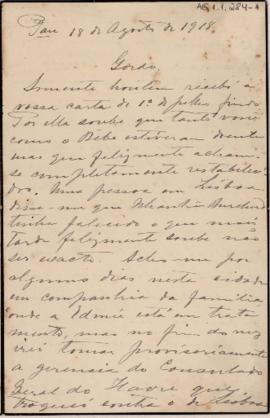 AG 1.1.284-1
Pau 18 de Agosto de 1918.
Gordo,
Somente hontem recebi a
vossa carta de 1º de julho findo
Por ella soube que tanto você
como o Bébé estiveram doente
mas que felizmente acham-
se completamente restabeleci-
dos. Uma pessoa em Lisboa
disse-me que
tinha fallecido o que mais
tarde felizmente soube não
ser exacto. Acho-me por
alguns dias nesta cidade
em companhia da familia
onde a Edmée está em trata-
mento, mas no fim do mez
irei tomar provisoriamente
a gerencia do Consulado
Geral do Havre que
troquei contra o de Lisboa